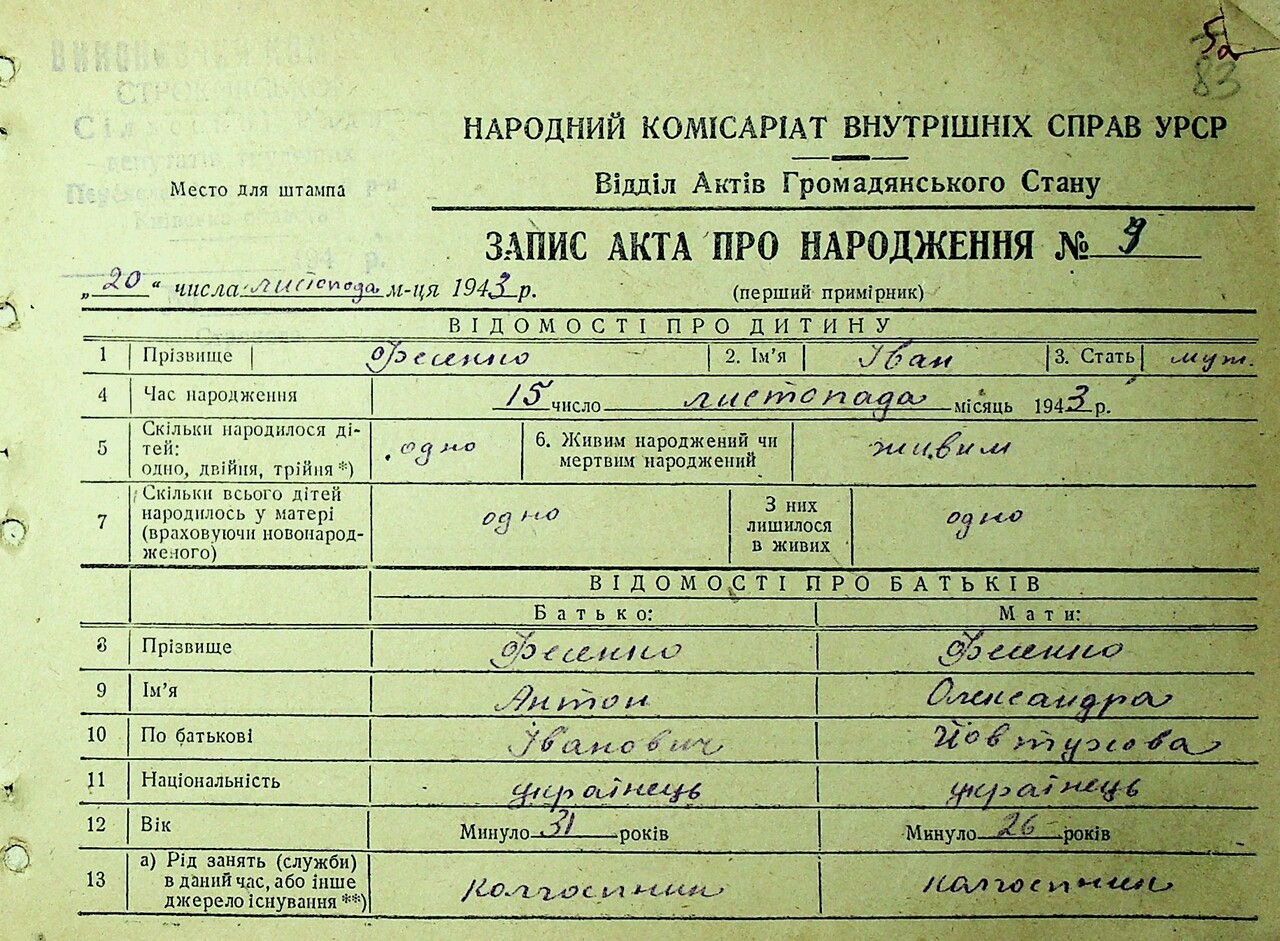 5а
83
НАРОДНИЙ КОМІСАРІАТ ВНУТРІШНІХ СПРАВ УРСР
Відділ Актів Громадянського Стану
СТРОКІВСЬКОЇ
Сільської Ради
депутатів трудящих
Київської області
194 р.
Место для штампа
ЗАПИС АКТА ПРО НАРОДЖЕННЯ № 9
„20“ числа листопада м-ця 1943 р.
(перший примірник)
ВІДОМОСТІ ПРО ДИТИНУ
1 Прізвище Фесенко 2. Ім'я Іван 3. Стать муж.
4 Час народження 15 число листопада місяць 1943 р.
5 Скільки народилося ді-
тей:
одно, двійня, трійня *) одно 6. Живим народжений чи
мертвим народжений живим
7 Скільки всього дітей
народилось у матері
(враховуючи новонарод-
женого) одно З них
лишилося
в живих одно
ВІДОМОСТІ ПРО БАТЬКІВ
Батько: Мати:
8 Прізвище Фесенко Фесенко
9 Ім'я Антон Олександра
10 По батькові Іванович Йовтухова
11 Національність українець українець
12 Вік Минуло 31 років Минуло 26 років
13 а) Рід занять (служби)
в даний час, або інше
джерело існування **) колгоспник колгоспник